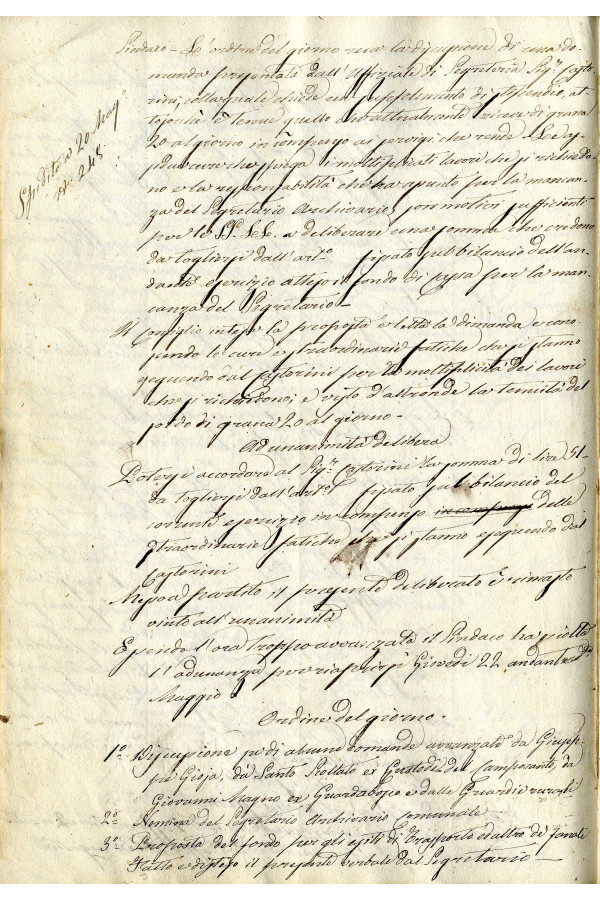 Sindaco – L'ordine del giorno reca la discussione di una do-
manda presentata dall'Uffiziale di Segreteria Sig.r Casto-
rini, colla quale chiede un supplimento di stipendio, at-
tesochè è tenue quello che attualmente riceve di grana
20 al giorno in compenso ai servigi che rende – Le as-
sidue cure che spiega i moltiplicati lavori che si richiedo-
no e la responsabilità che ha assunto per la mancan-
za del Segretario Archivario, son motivi sufficienti
per le SS. LL. a deliberare una somma che credono
da togliersi dall'art.o fissato sul bilancio dell'an-
dante esercizio atteso il fondo di cassa per la man-
canza del Segretario –
Spedito a 20 Mag.o
N. 248
Il Consiglio intesa la proposta e letta la dimanda e cono-
scendo le cure e straordinarie fatiche che si stanno
eseguendo dal Castorini per la moltiplicità dei lavori
che si richiedono; e visto d'altronde la tenuità del
soldo di grana 20 al giorno –
Ad unanimità delibera
Potersi accordare al Sig.r Castorini la somma di lire 51-
da togliersi dall'art.o fissato sul bilancio del
corrente esercizio in compenso delle
straordinarie fatiche che si stanno eseguendo dal
Castorini
Messo a partito il presente deliberato è rimasto
vinto all'unanimità
Essendo l'ora troppo avvanzata il Sindaco ha sciolta
l'adunanza per riaprirsi Giovedì 22 andante
Maggio
Ordine del giorno –
1.o Discussione su di alcune domande avvanzate da Giusep-
pe Gioja, da Santo ex Custode del Camposanto, da
Giovanni Magno ex Guardabosco e dalle Guardie rurali
2.o Nomina del Segretario Archivario Comunale
3.o Proposta del fondo per gli esiti di trasporto ed altro de' fanali
Fatto e disteso il presente verbale dal Segretario –